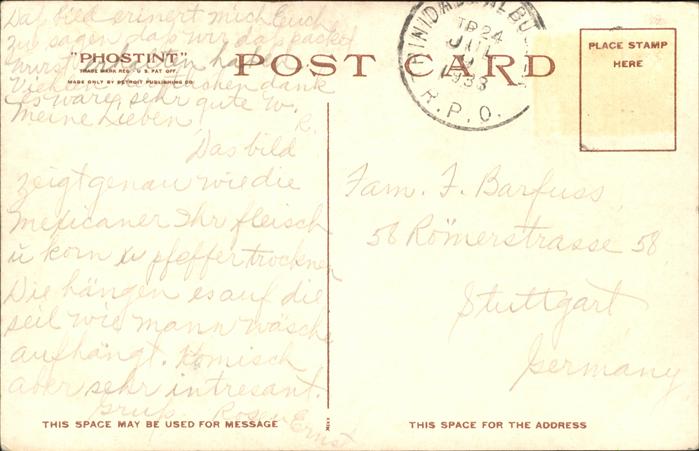 Das bild erinert mich Euch
zu sagen das wir das packet
wurst erhalten haben
Vielen danken dank
Es ware sehr gute W.
Meine Lieben R.
"PHOSTINT"
TRADE MARK REG. U.S. PAT. OFF.
MADE ONLY BY DETROIT PUBLISHING CO.
POST CARD
TR 24
JUL
1933
R.P.O.
PLACE STAMP
HERE
Das bild
zeigt genau wie die
Mexicaner Ihr fleisch
ü korn ü pfeffer trocknen
Die hängen es auf die
seil wie mann wäsche
aufhängt. Komisch
aber sehr intresant.
Grus. Rosa Ernst
Fam. F. Barfuss,
58 Römerstrasse 58
Stuttgart
Germany
THIS SPACE MAY BE USED FOR MESSAGE
THIS SPACE FOR THE ADDRESS